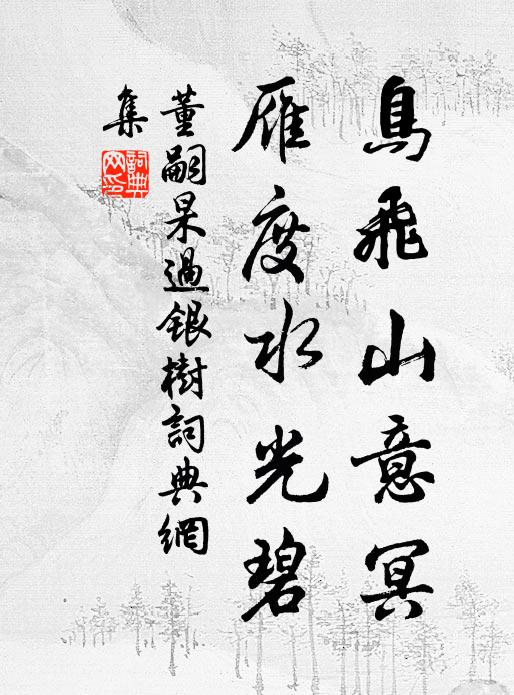 鳥飛山意冥
雁度水光碧
董嗣杲過銀樹詞典網
集
詞典
网印